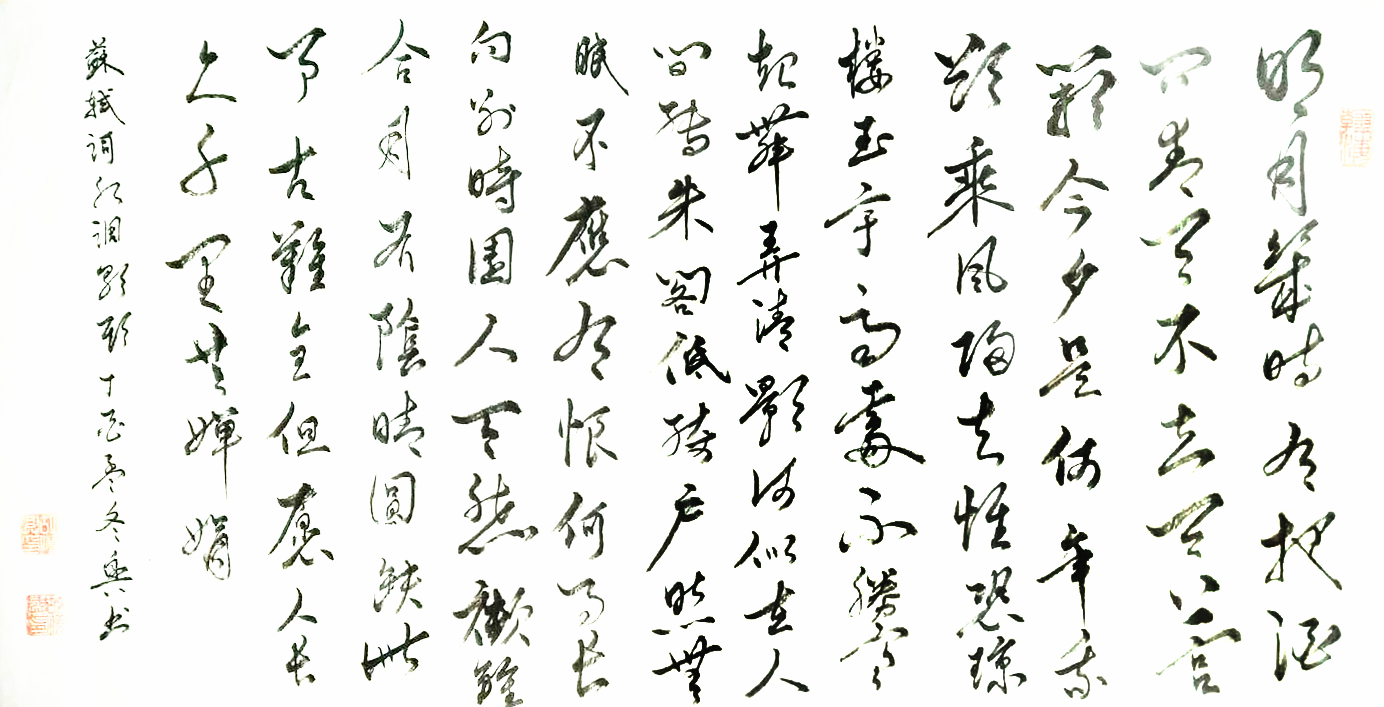 明月幾時有把酒
问青天不知天上宮
闕今夕是何年我
欲乘風歸去惟恐瓊
樓玉宇高處不勝寒
起舞弄清影何似在人
間轉朱閣低綺戶照無
眠不應有恨何事長
向別時圓人歡離
合月有陰晴圓缺此
事古難全但願人長
久千里共嬋娟
蘇軾詞水調歌頭丁酉孟冬书